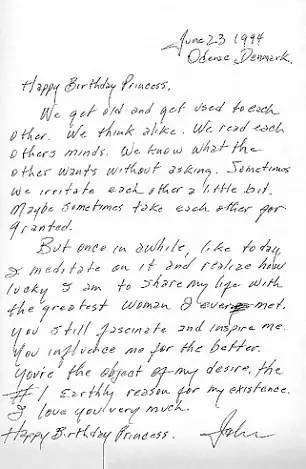 June 23 1994
Odense, Denmark.
Happy Birthday Princess,
We get old and get used to each
other. We think alike. We read each
others minds. We know what the
other wants without asking. Sometimes
we irritate each other a little bit.
Maybe sometimes take each other for
granted.
But once in awhile, like today
I meditate on it and realize how
lucky I am to share my life with
the greatest woman I ever met.
You still fascinate and inspire me.
You influence me for the better.
You're the object of my desire, the
#1 Earthly reason for my existence.
I love you very much.
Happy Birthday Princess.
John